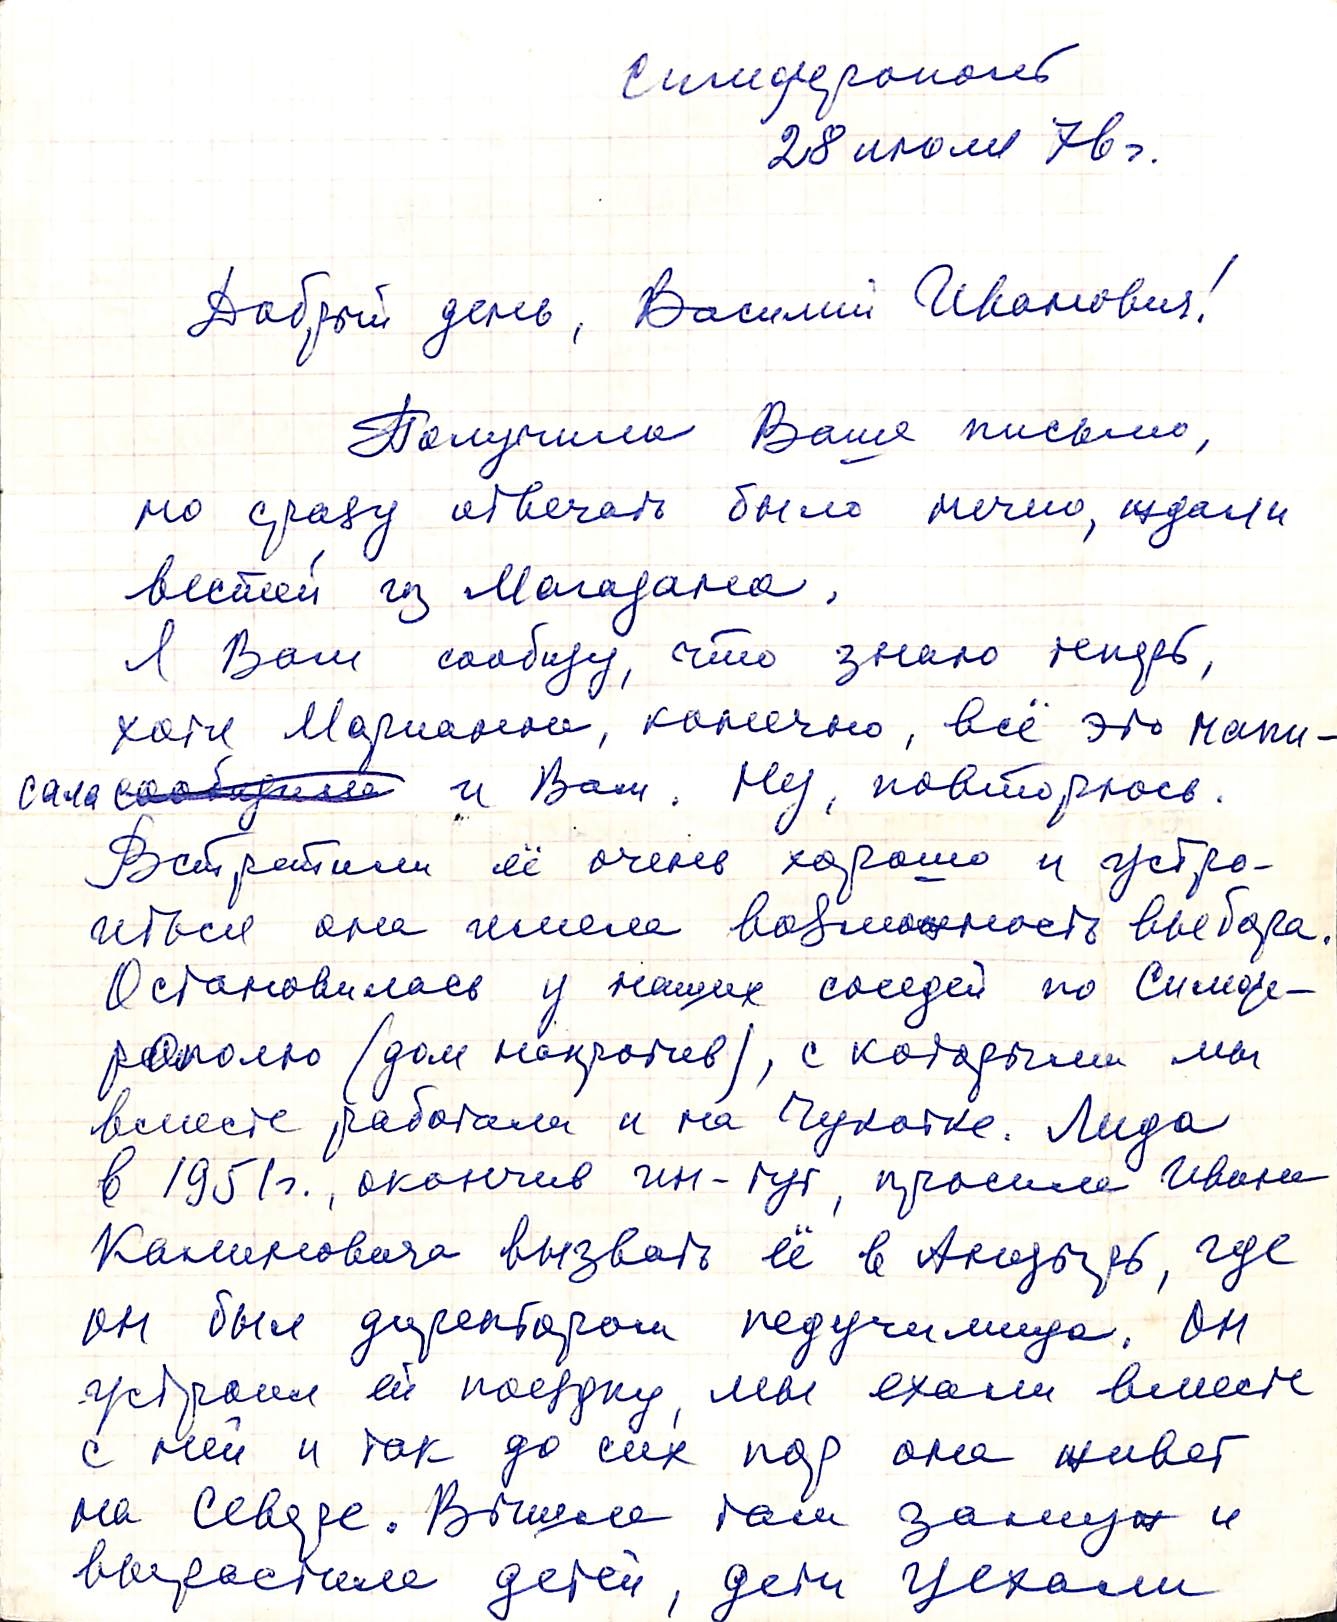 Симферополь
28 июля 76 г.
Добрый день, Василий Иванович!
Получила Ваше письмо,
но сразу отвечать было нечно, ждали
вестей из Магадана.
Я Вам сообщу, что знаю теперь,
хотя Марианна, конечно, всё это напи-
сала сообщила и Вам. Ну, повторюсь.
Встретили её очень хорошо и устро-
иться она имела возможность выбора.
Остановилась у наших соседей по Симфе-
рополю (дом напротив), с которыми мы
вместе работали и на Чукотке. Лида
в 1951 г., окончив ин-тут, просила Ивана
Калиновича вызвать её в Анадырь, где
он был директором педучилища. Он
устроил ей поездку, мы ехали вместе
с ней и так до сих пор она живет
на Севере. Вышла там замуж и
вырастила детей, дети уехали